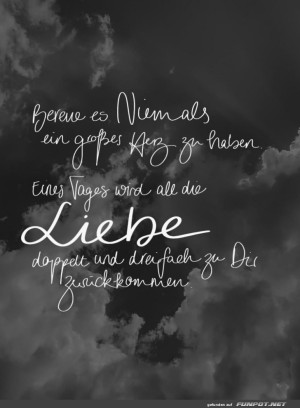 Bereue es Niemals
ein großes Herz zu haben.
Eines Tages wird all die
Liebe
doppelt und dreifach zu Dir
zurückkommen.
gefunden auf FUNPOT.NET